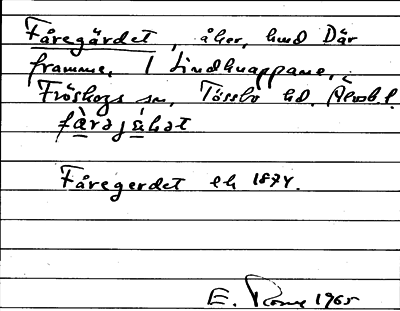 Fåregärdet, åker, hmd Där
framme, I Lindknappane,
Fröskogs sn, Tössbo hd. Älvsb. l.
Fåregerdet ek 1874.
E. 1965